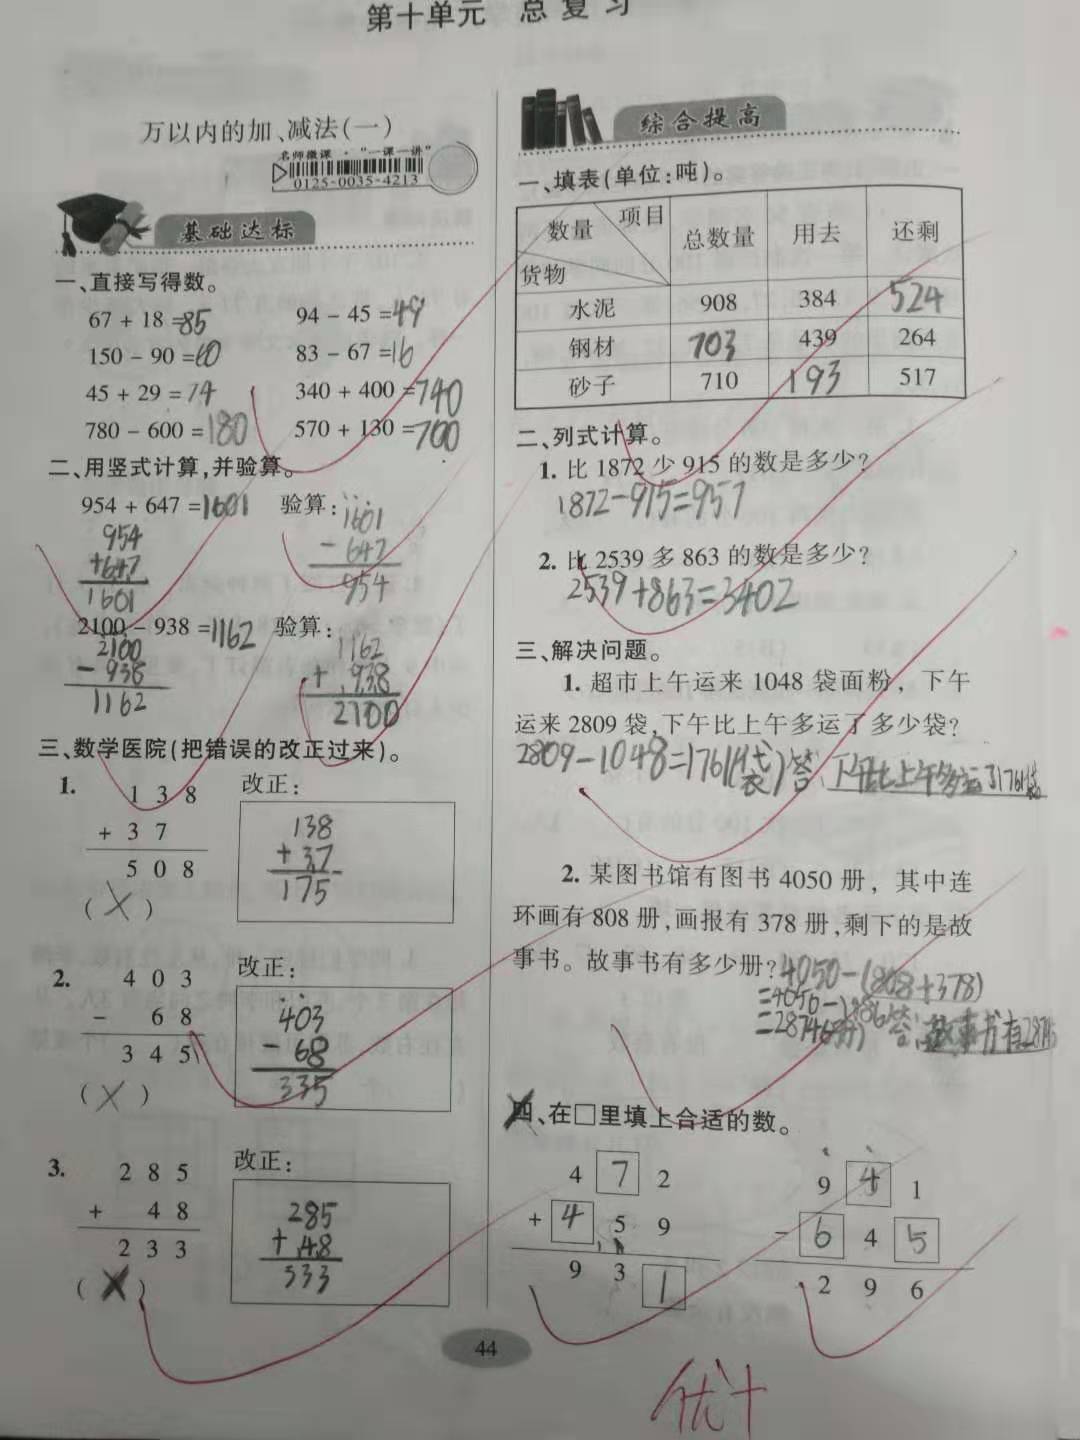 第十单元 总复习
万以内的加、减法(一)
名师微课·“一课一讲”
0125-0035-4213
基础达标
一、直接写得数。
67 + 18 =85 94 - 45 =49
150 - 90 =60 83 - 67 =16
45 + 29 =74 340 + 400 =740
780 - 600 =180 570 + 130 =700
二、用竖式计算,并验算。
954 + 647 =1601 验算:
954
+647
1601
1601
- 647
954
2100 - 938 =1162 验算:
2100
- 938
1162
1162
+ 938
2100
三、数学医院(把错误的改正过来)。
1. 138
+ 37
508
(X)
改正:
138
+ 37
175
2. 403
- 68
345
(X)
改正:
403
- 68
335
3. 285
+ 48
233
(X)
改正:
285
+ 48
333
综合提高
一、填表(单位:吨)。
数量 项目 货物 总数量 用去 还剩
水泥 908 384 524
钢材 703 439 264
砂子 710 193 517
二、列式计算。
1. 比 1872 少 915 的数是多少?
1872-915=957
2. 比 2539 多 863 的数是多少?
2539+863=3402
三、解决问题。
1. 超市上午运来 1048 袋面粉, 下午
运来 2809 袋,下午比上午多运了多少袋?
2809-1048=1761(袋)答:下午比上午多运了1761袋
2. 某图书馆有图书 4050 册, 其中连
环画有 808 册,画报有 378 册,剩下的是故
事书。故事书有多少册?
4050-(808+378)
=4050-1186
=2874(册) 答:故事书有2874
四、在□里填上合适的数。
4 7 2
+ 4 5 9
9 3 1
9 4 1
- 6 4 5
2 9 6
44
优+